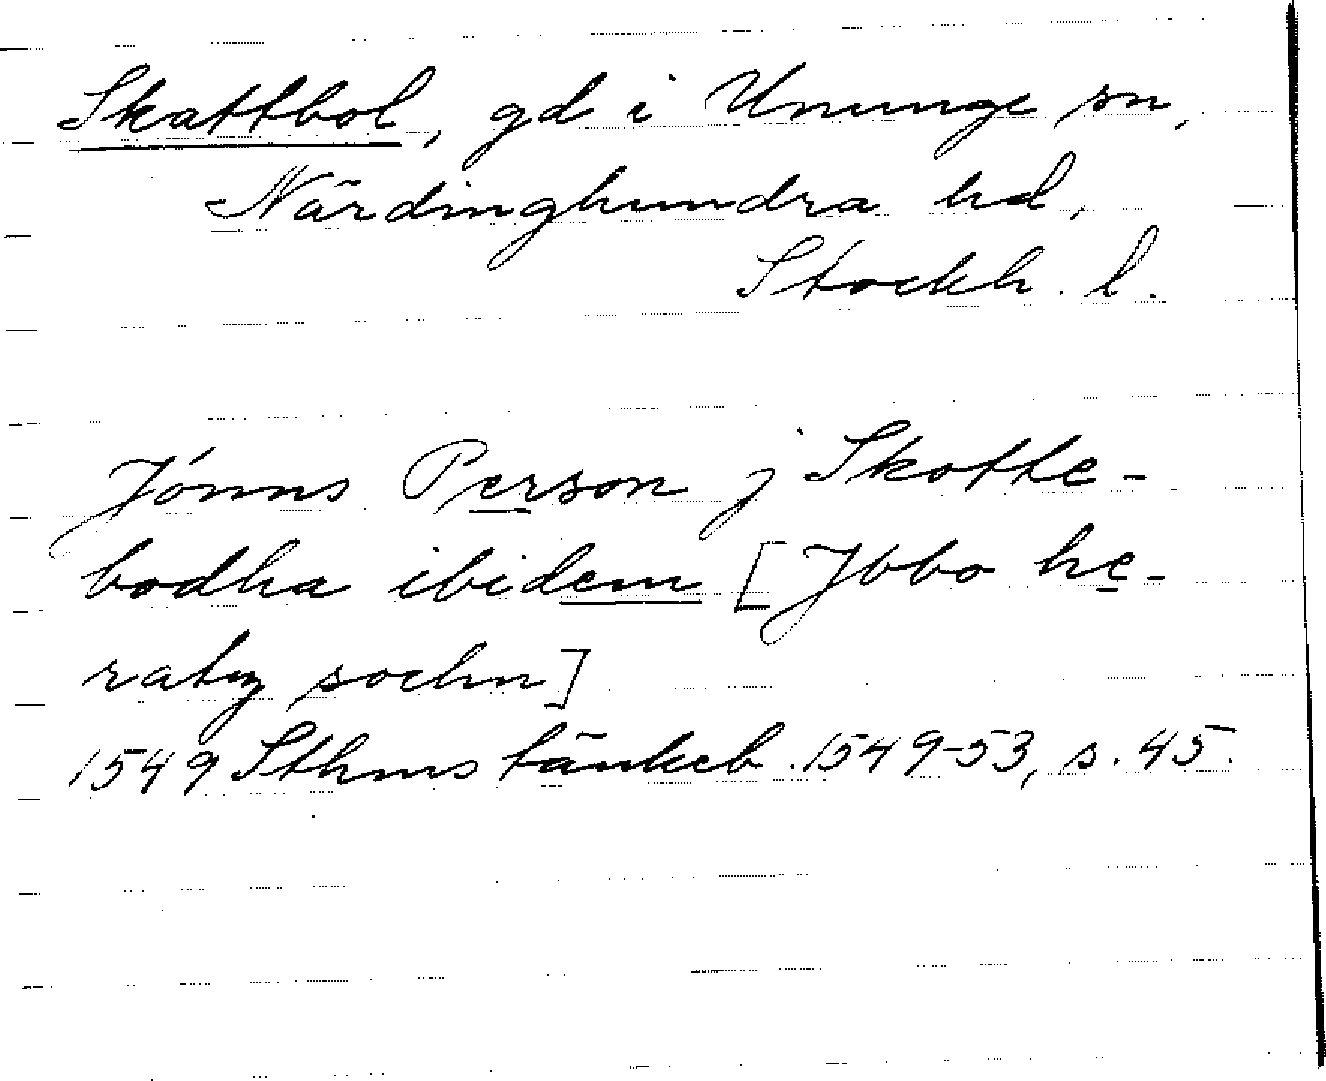 Skattbol, gd i Ununge sn,
Närdinghundra hd,
Stockh. l.
Jönns Person j Skotte-
bodha ibidem [Jbbo he-
ratz sochn]
1549 Sthms tänkeb. 1549-53, s. 45.